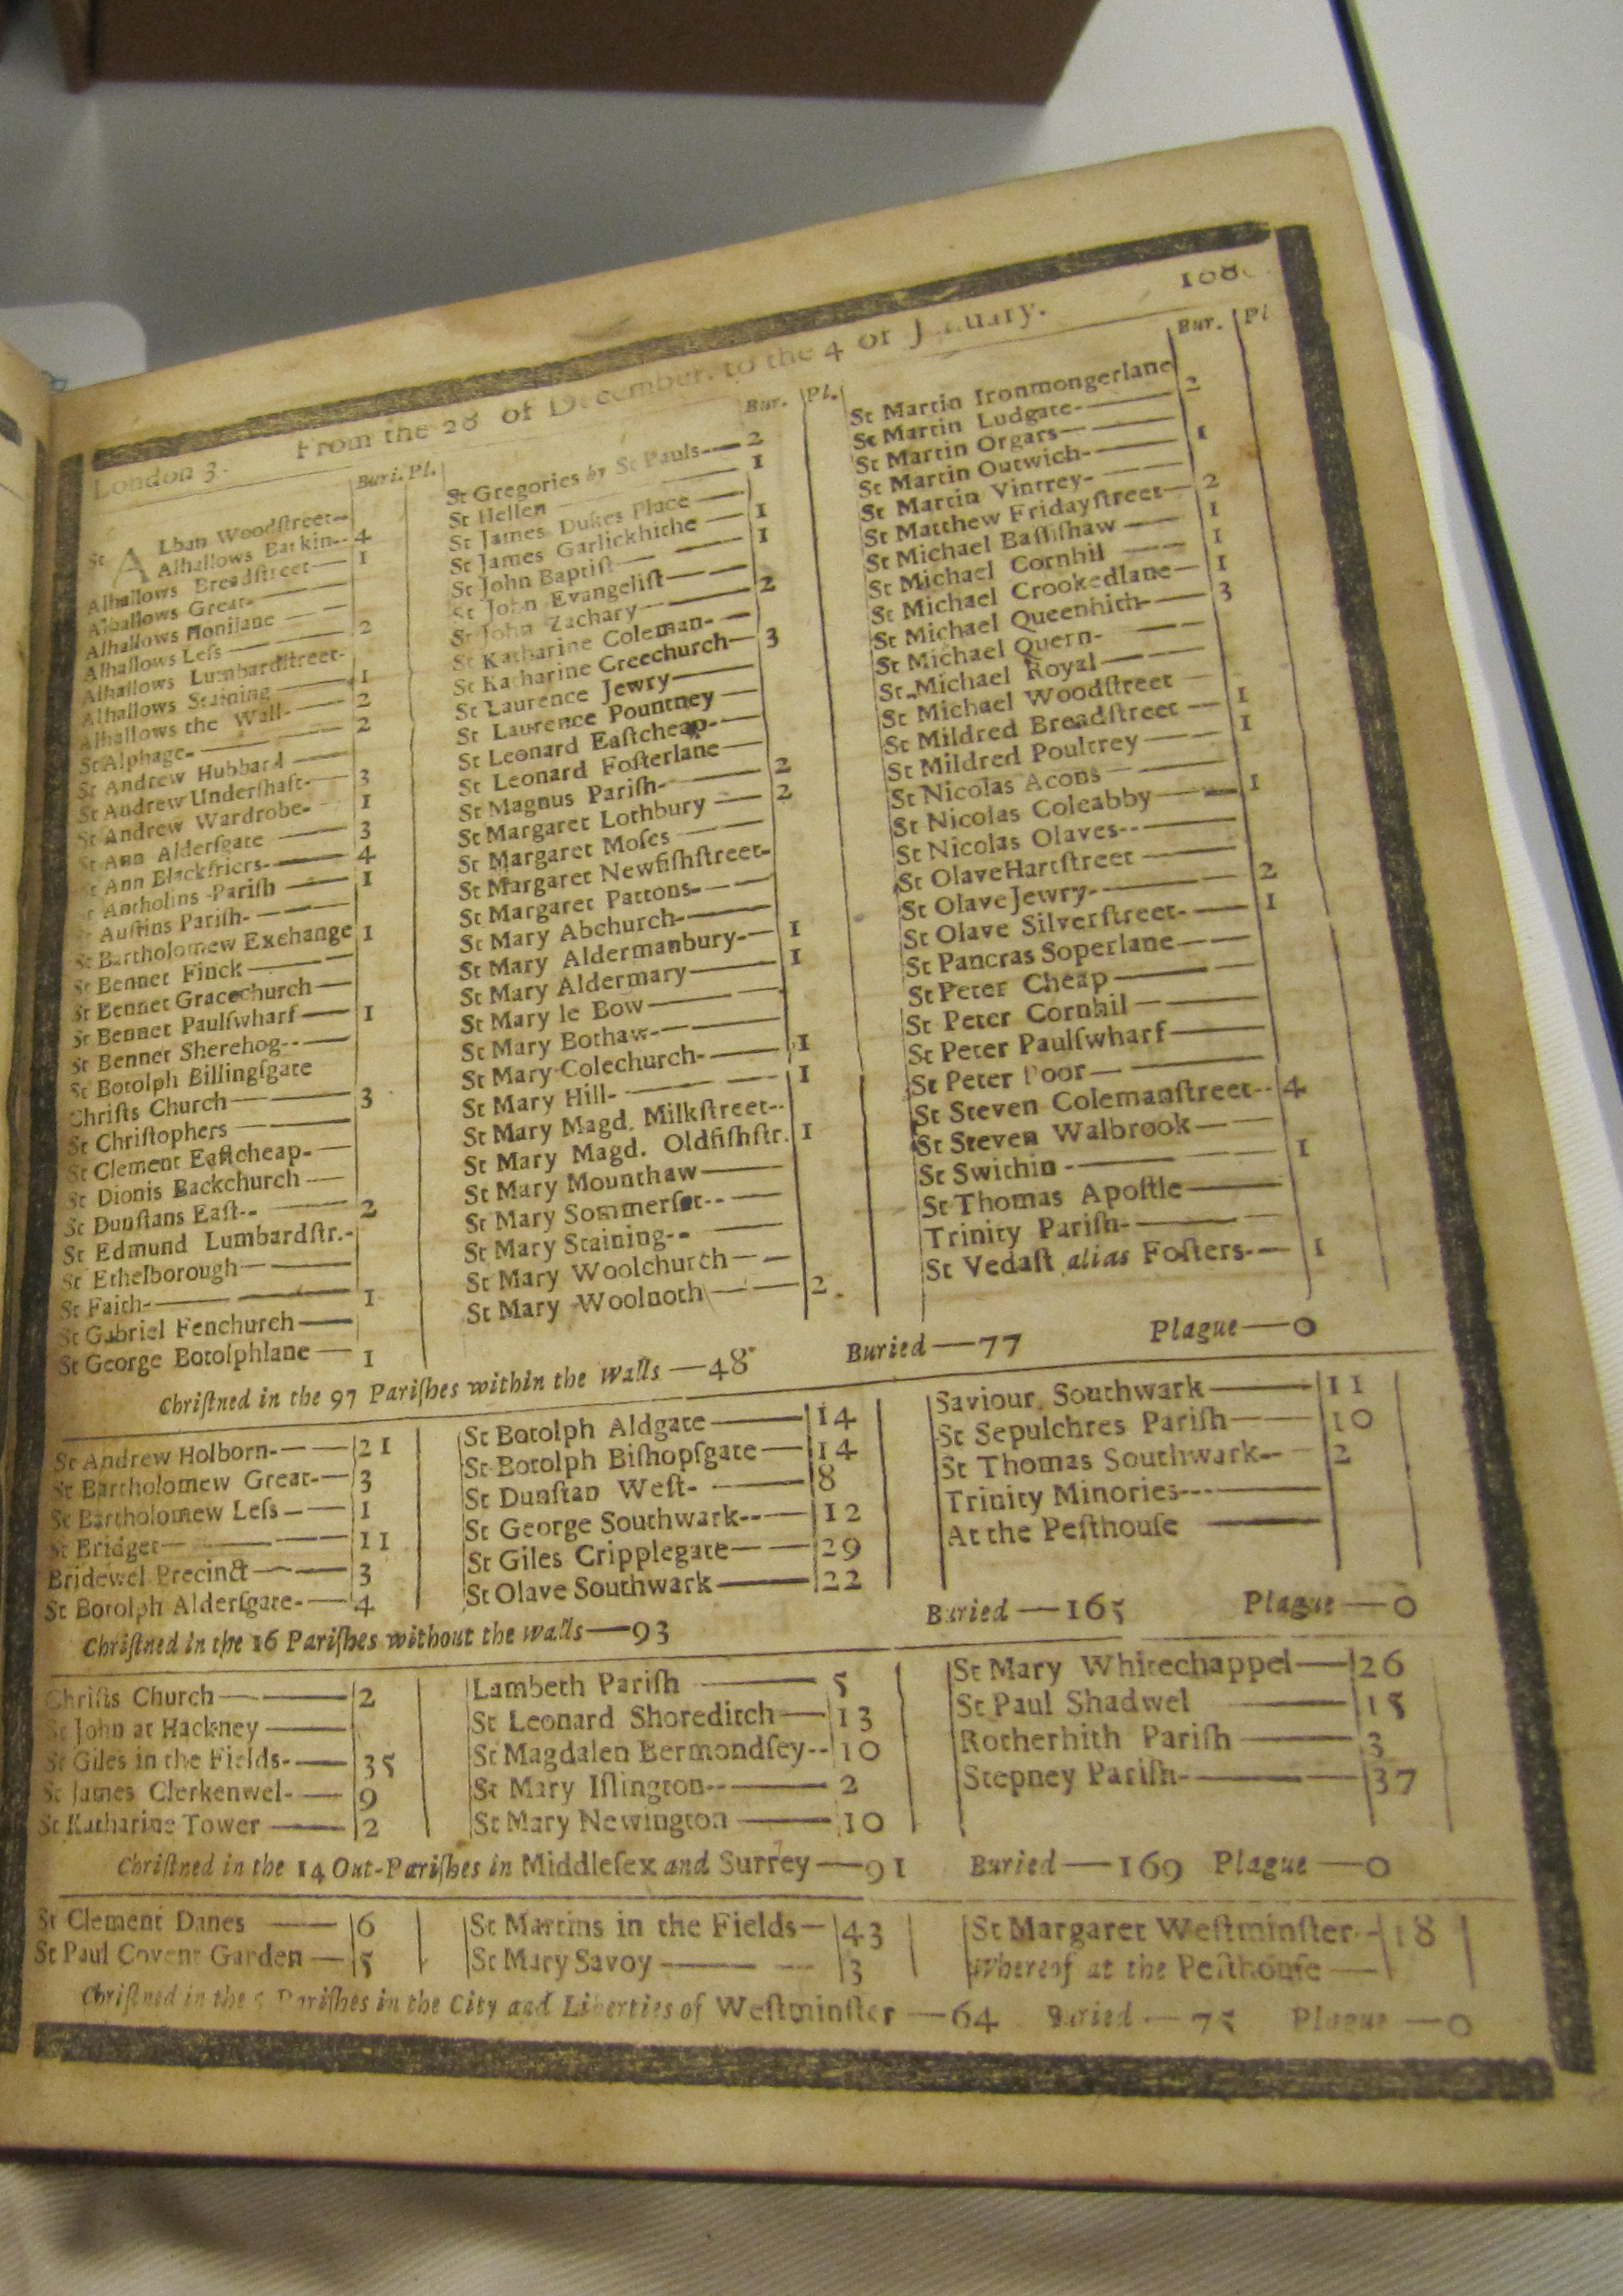 London 3. From the 28 of December, to the 4 of January. 168
Buri. Pl.
St ALban Woodſtreet--
Alhallows Barkin-- 4
Alhallows Breadſtreet— 1
Alhallows Great-
Alhallows Honilane
Alhallows Leſs — 2
Alhallows Lumbardſtreet-
Alhallows Staining — 1
Alhallows the Wall- — 2
St Alphage- — 2
St Andrew Hubbard —
St Andrew Underſhaft- — 3
St Andrew Wardrobe- 1
St Ann Alderſgate — 3
St Ann Blackfriers- — 4
St Antholins Pariſh — 1
St Auſtins Pariſh- —
St Bartholomew Exchange 1
St Bennet Finck —
St Bennet Gracechurch —
St Bennet Paulſwharf — 1
St Bennet Sherehog-- —
St Botolph Billingſgate
Chriſts Church — 3
St Chriſtophers —
St Clement Eaſtcheap- —
St Dionis Backchurch —
St Dunſtans Eaſt-- — 2
St Edmund Lumbardſtr.-
St Ethelborough —
St Faith- — 1
St Gabriel Fenchurch —
St George Botolphlane — 1
Bur. Pl.
St Gregories by St Pauls-— 2
St Hellen — 1
St James Dukes Place —
St James Garlickhithe — 1
St John Baptiſt — 1
St John Evangeliſt —
St John Zachary — 2
St Katharine Coleman- —
St Katharine Creechurch— 3
St Laurence Jewry —
St Laurence Pountney —
St Leonard Eaſtcheap- —
St Leonard Foſterlane —
St Magnus Pariſh- — 2
St Margaret Lothbury — 2
St Margaret Moſes —
St Margaret Newfiſhſtreet-
St Margaret Pattons- —
St Mary Abchurch- —
St Mary Aldermanbury- — 1
St Mary Aldermary — 1
St Mary le Bow —
St Mary Bothaw- —
St Mary Colechurch- — 1
St Mary Hill- — 1
St Mary Magd. Milkſtreet--
St Mary Magd. Oldfiſhſtr. 1
St Mary Mounthaw —
St Mary Sommerſet-- —
St Mary Staining-- —
St Mary Woolchurch —
St Mary Woolnoth — 2
Bur. Pl
St Martin Ironmongerlane
St Martin Ludgate- — 2
St Martin Orgars —
St Martin Outwich- — 1
St Martin Vintrey- —
St Matthew Fridayſtreet— 2
St Michael Baſſiſhaw — 1
St Michael Cornhil — 1
St Michael Crookedlane— 1
St Michael Queenhith- — 3
St Michael Quern- —
St Michael Royal —
St Michael Woodſtreet —
St Mildred Breadſtreet — 1
St Mildred Poultrey — 1
St Nicolas Acons —
St Nicolas Coleabby — 1
St Nicolas Olaves-- —
St Olave Hartſtreet —
St Olave Jewry- — 2
St Olave Silverſtreet- — 1
St Pancras Soperlane —
St Peter Cheap —
St Peter Cornhil —
St Peter Paulſwharf —
St Peter Poor —
St Steven Colemanſtreet-- 4
St Steven Walbrook —
St Swithin - — 1
St Thomas Apoſtle —
Trinity Pariſh- —
St Vedaſt alias Foſters- — 1
Chriſtned in the 97 Pariſhes within the Walls —48 Buried —77 Plague —0
St Andrew Holborn- — 21
St Bartholomew Great- — 3
St Bartholomew Leſs — 1
St Bridget — 11
Bridewel Precinct — 3
St Botolph Alderſgate- — 4
St Botolph Aldgate — 14
St Botolph Biſhopſgate — 14
St Dunſtan Weſt- — 8
St George Southwark-- — 12
St Giles Cripplegate — 29
St Olave Southwark — 22
Saviour Southwark — 11
St Sepulchres Pariſh — 10
St Thomas Southwark-- 2
Trinity Minories-- —
At the Peſthouſe —
Chriſtned in the 16 Pariſhes without the walls —93 Buried —165 Plague —0
Chriſts Church — 2
St John at Hackney —
St Giles in the Fields- — 35
St James Clerkenwel- — 9
St Katharine Tower — 2
Lambeth Pariſh — 5
St Leonard Shoreditch — 13
St Magdalen Bermondſey-- 10
St Mary Iſlington-- — 2
St Mary Newington — 10
St Mary Whitechappel — 26
St Paul Shadwel — 15
Rotherhith Pariſh — 3
Stepney Pariſh- — 37
Chriſtned in the 14 Out-Pariſhes in Middleſex and Surrey —91 Buried —169 Plague —0
St Clement Danes — 6
St Paul Covent Garden — 5
St Martins in the Fields — 43
St Mary Savoy — 3
St Margaret Weſtminſter- 18
Whereof at the Peſthouſe —
Chriſtned in the 5 Pariſhes in the City and Liberties of Weſtminſter —64 Buried —75 Plague —0